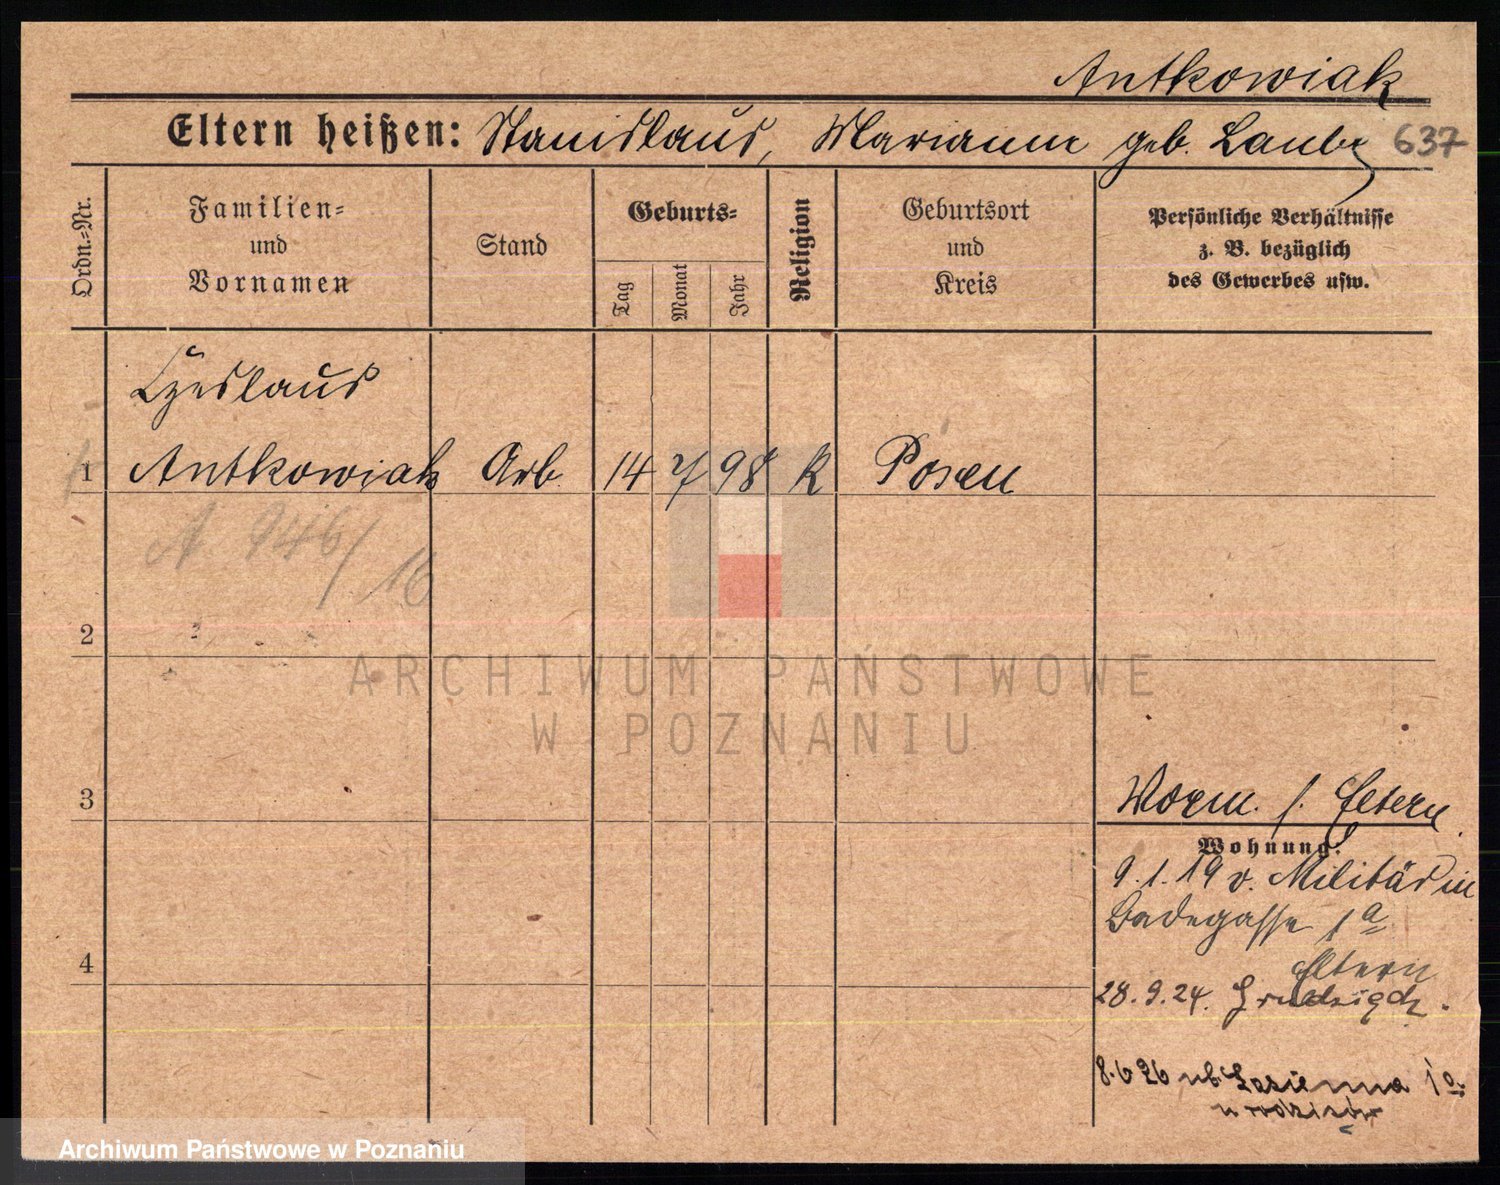 Antkowiak
Eltern heißen: Stanislaus, Mariann geb. Laube 637
Ordn.=Nr.
Familien=
und
Vornamen
Stand
Geburts=
Tag
Monat
Jahr
Religion
Geburtsort
und
Kreis
Persönliche Verhältnisse
z. B. bezüglich
des Gewerbes usw.
Czeslaus
1 Antkowiak Arb. 14 7 98 K Posen
A 946/16
2
ARCHIWUM PAŃSTWOWE
W POZNANIU
3
Worm. f. Eltern
Wohnung:
9.1.19 v. Militär in
Badegasse 1a
4
Eltern
28.9.24. Grudziądz.
8.6 26 ul. Łazienna 1a.
u rodziców
Archiwum Państwowe w Poznaniu